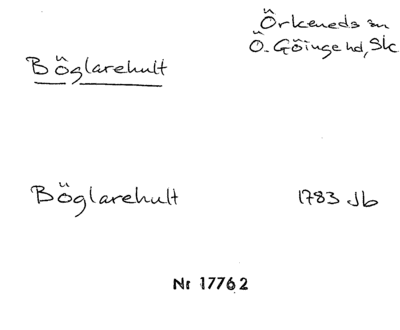 Örkeneds sn
Ö. Göinge hd, Sk
Böglarehult
Böglarehult 1783 Jb
Nr 17762